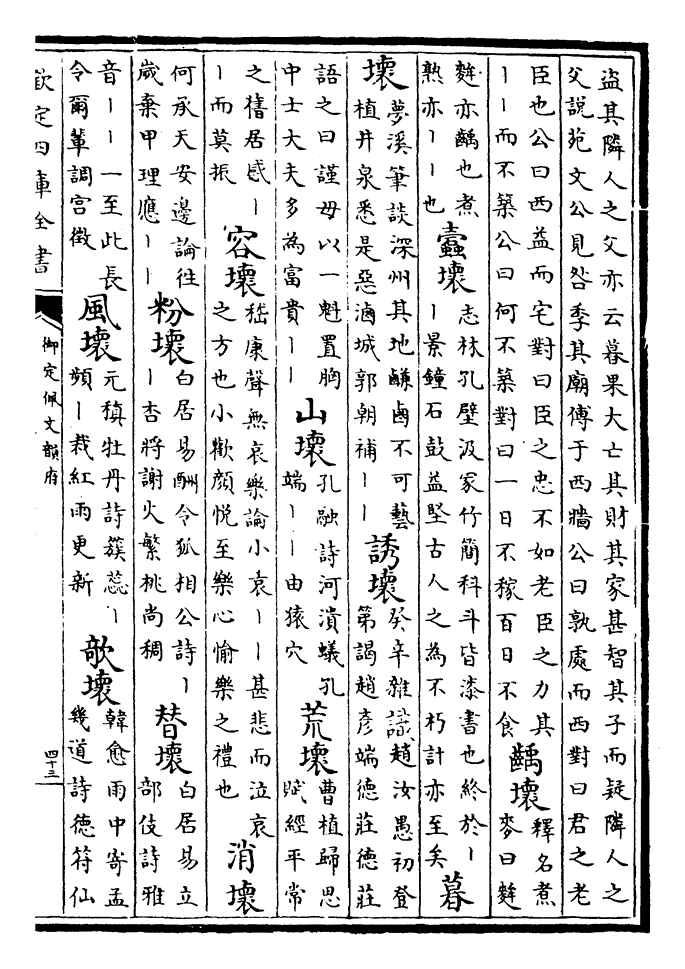 盜其隣人之父亦云暮果大亡其財其家甚智其子而疑隣人之
父說苑文公見咎季其廟傅于西牆公曰孰處而西對曰君之老
臣也公曰西益而宅對曰臣之忠不如老臣之力其
丨丨而不築公曰何不築對曰一日不稼百日不食
齲壞
釋名煮
麥曰麰
麰亦齲也煮
熟亦丨丨也
蠹壞
志林孔壁汲冡竹簡科斗皆漆書也終於丨
丨景鐘石鼓益堅古人之為不朽計亦至矣
暮
壞
夢溪筆談深州其地鹻鹵不可藝
植井泉悉是惡滷城郭朝補丨丨
誘壞
癸辛雜識趙汝愚初登
第謁趙彥端德莊德莊
語之曰謹毋以一魁置胸
中士大夫多為富貴丨丨
山壞
孔融詩河潰蟻孔
端丨丨由猿穴
荒壞
曹植歸思
賦經平常
之舊居感丨
丨而莫振
容壞
嵇康聲無哀樂論小哀丨丨甚悲而泣哀
之方也小歡顏悅至樂心愉樂之禮也
消壞
何承天安邊論往
歲棄甲理應丨丨
粉壞
白居易酬令狐相公詩丨
丨杏將謝火繁桃尚稠
替壞
白居易立
部伎詩雅
音丨丨一至此長
令爾輩調宮徵
風壞
元稹牡丹詩蔟蕊丨
頻丨裁紅雨更新
歌壞
韓愈雨中寄孟
幾道詩德符仙
欽定四庫全書
御定佩文韻府
四十三